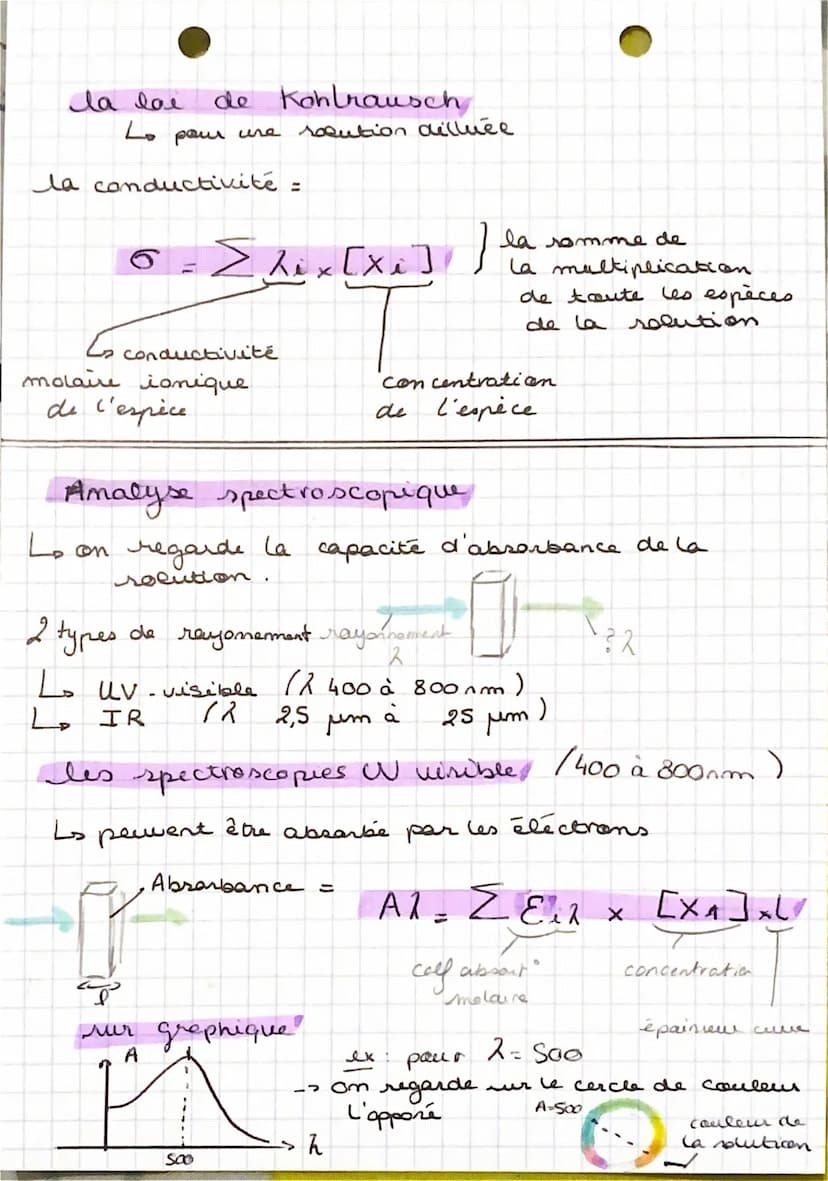 la loi de Kohlrausch
↳ pour une solution dilluée
la conductivité =
σ = ∑ λi × [Xi]
la somme de
la multiplication
de toute les espèces
de la solution
↳ conductivité
molaire ionique
de l'espèce
concentration
de l'espèce
Analyse spectroscopique
↳ on regarde la capacité d'absorbance de la
solution.
2 types de rayonnement
rayonnement
λ
? λ
↳ UV-visible (λ 400 à 800nm)
↳ IR (λ 2,5 µm à 25 µm)
les spectroscopies UV visible (400 à 800nm)
↳ peuvent être absorbée par les éléctrons
Absorbance =
Aλ = ∑ Ɛiλ × [X1] × l
l
coef absort°
molaire
concentration
épaisseur cuve
sur graphique
A
500
λ
ex : pour λ = 500
-> on regarde sur le cercle de couleur
l'opposé
A=500
couleur de
la solution